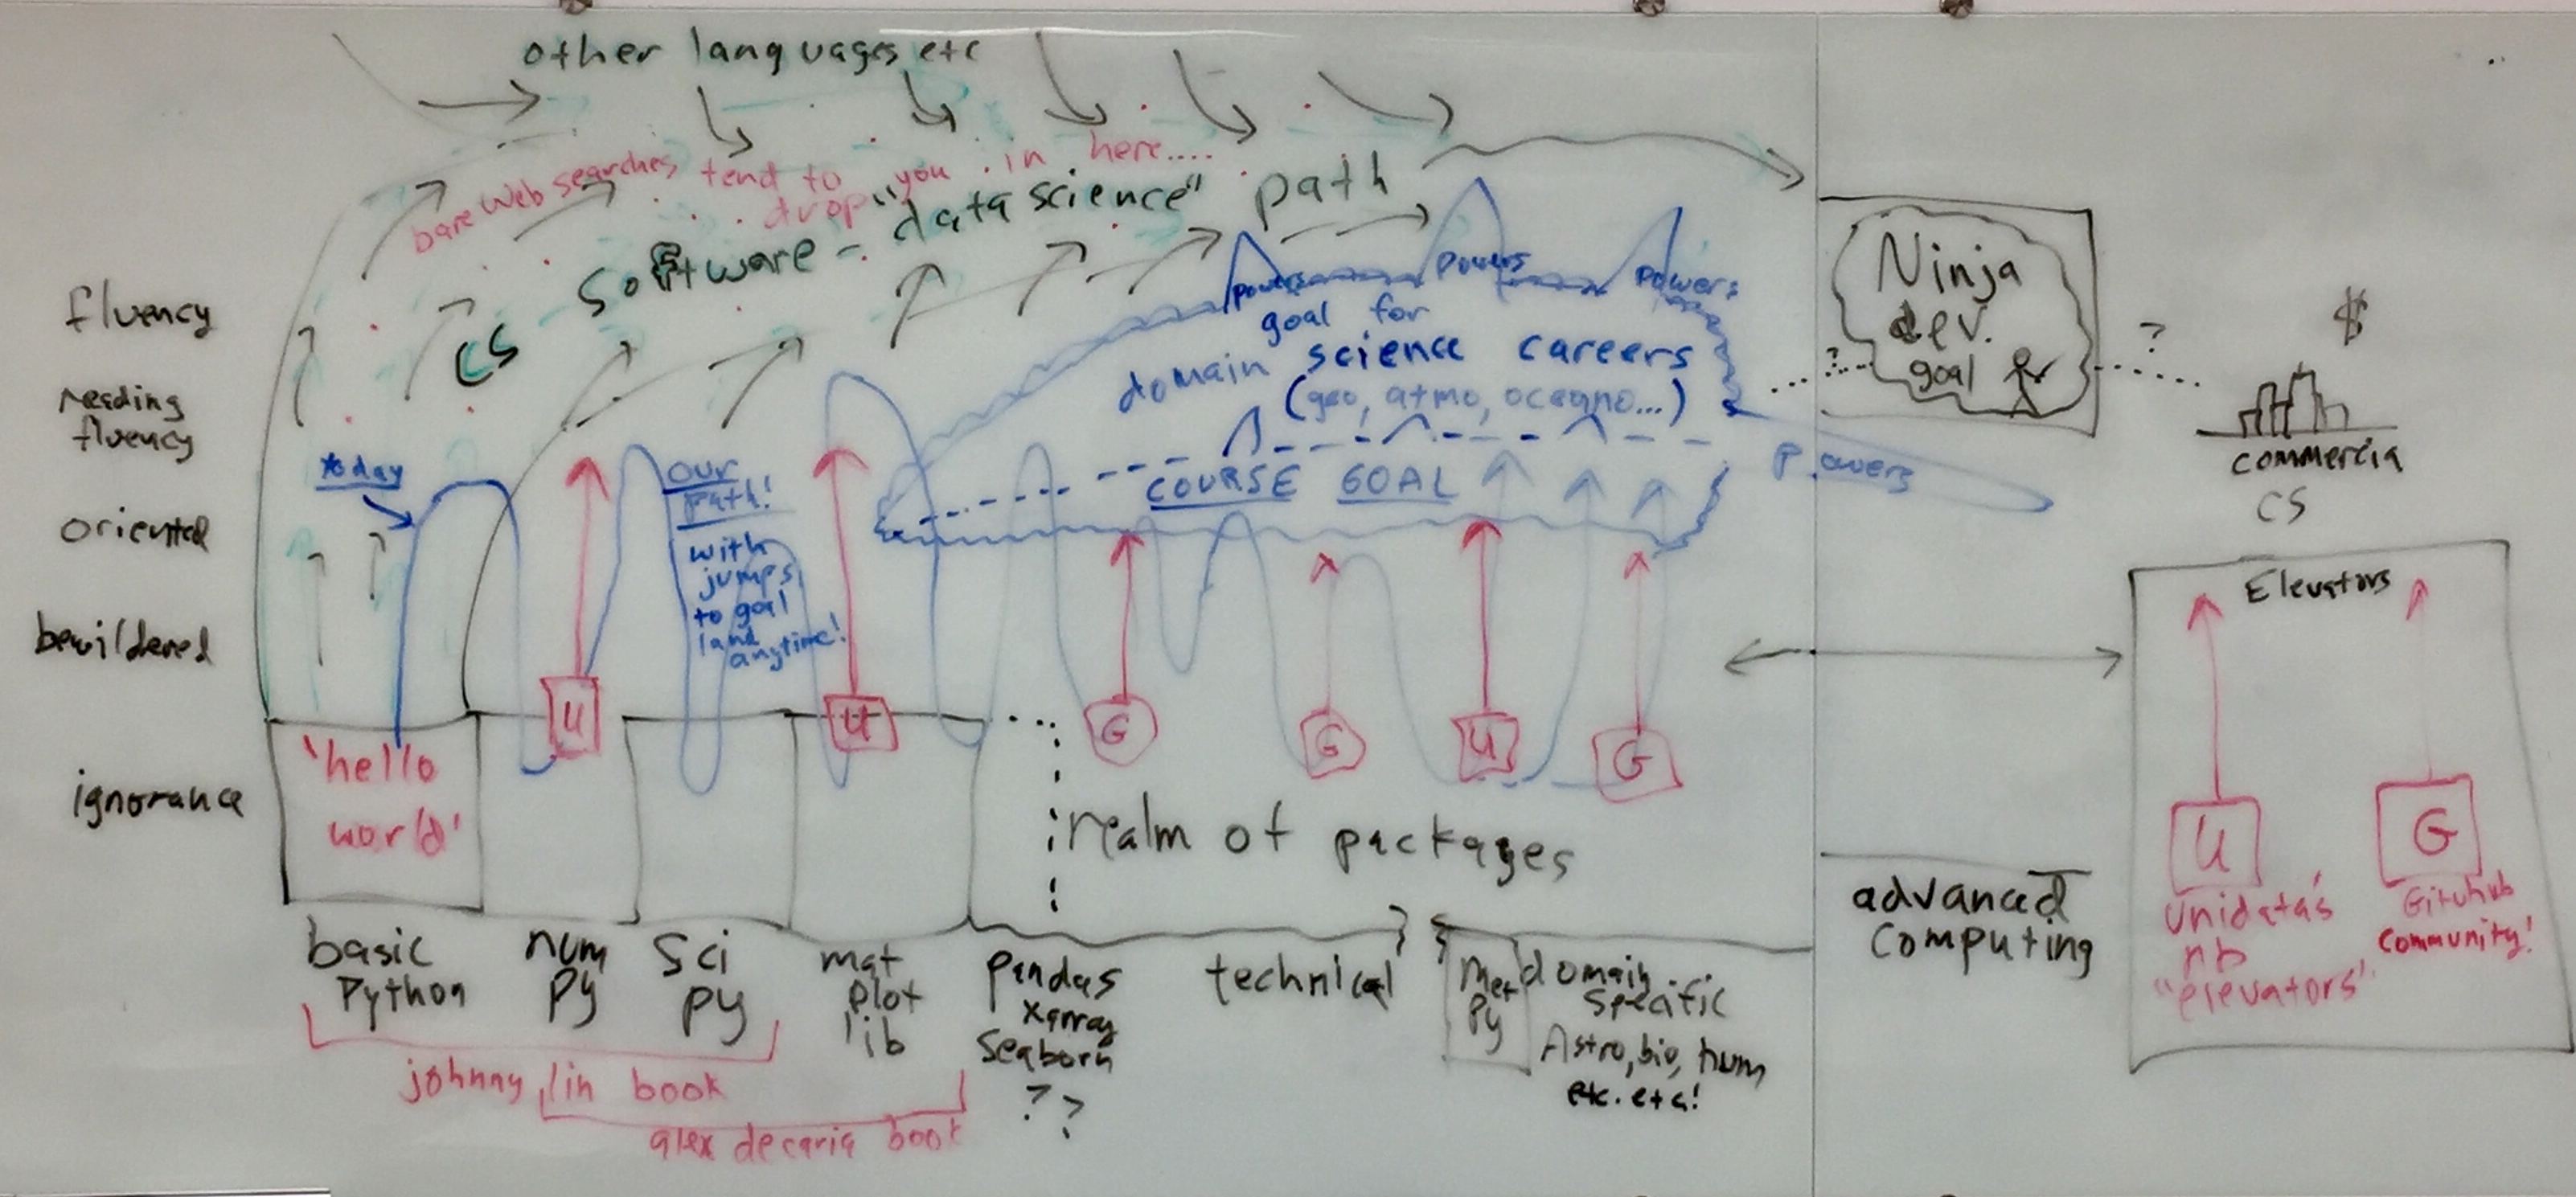 other languages etc
bare web searches tend to you in here....
drop
CS Software - "data science" path
fluency
reading
fluency
oriented
bewildered
ignorance
today
our
path!
with
jumps
to goal
land
anytime!
powers
powers
powers
goal for
domain science careers
(geo, atmo, oceano...)
COURSE GOAL
Powers
Ninja
dev.
goal
?
?
$
commercia
CS
'hello
world'
U
U
G
G
U
G
realm of packages
basic
Python
num
py
Sci
py
mat
plot
lib
pandas
xarray
Seaborn
? ?
technical
Met
Py
domain
specific
Astro, bio, hum
etc. etc!
advanced
computing
johnny lin book
alex decaria book
Elevators
U
G
Unidata's
nb
"elevators"
Gituhub
Community!